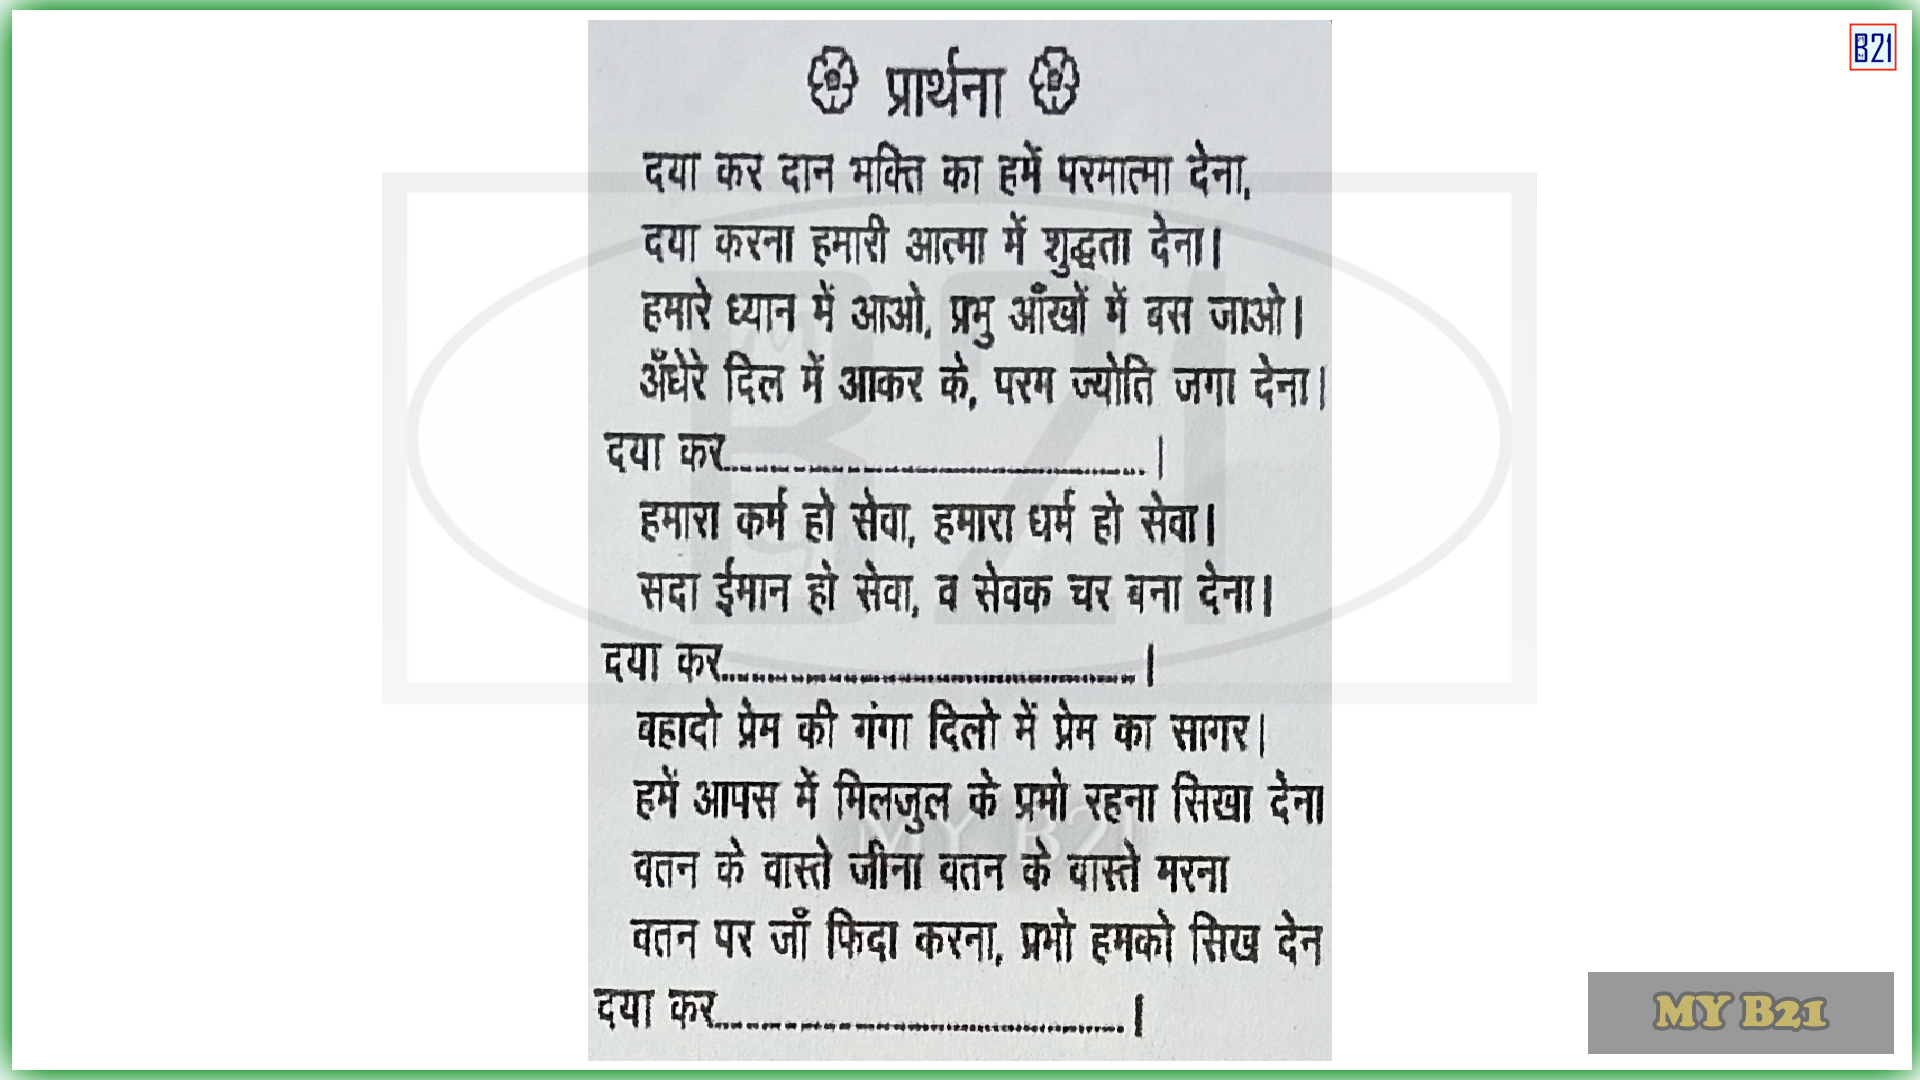 B21
प्रार्थना
दया कर दान भक्ति का हमें परमात्मा देना,
दया करना हमारी आत्मा में शुद्धता देना।
हमारे ध्यान में आओ, प्रभु आँखों में बस जाओ।
अँधेरे दिल में आकर के, परम ज्योति जगा देना।
दया कर..................................................।
हमारा कर्म हो सेवा, हमारा धर्म हो सेवा।
सदा ईमान हो सेवा, व सेवक चर बना देना।
दया कर..................................................।
बहादो प्रेम की गंगा दिलो में प्रेम का सागर।
हमें आपस में मिलजुल के प्रभो रहना सिखा देना
वतन के वास्ते जीना वतन के वास्ते मरना
वतन पर जाँ फिदा करना, प्रभो हमको सिख देन
दया कर..................................................।
B21
MY B21
MY B21